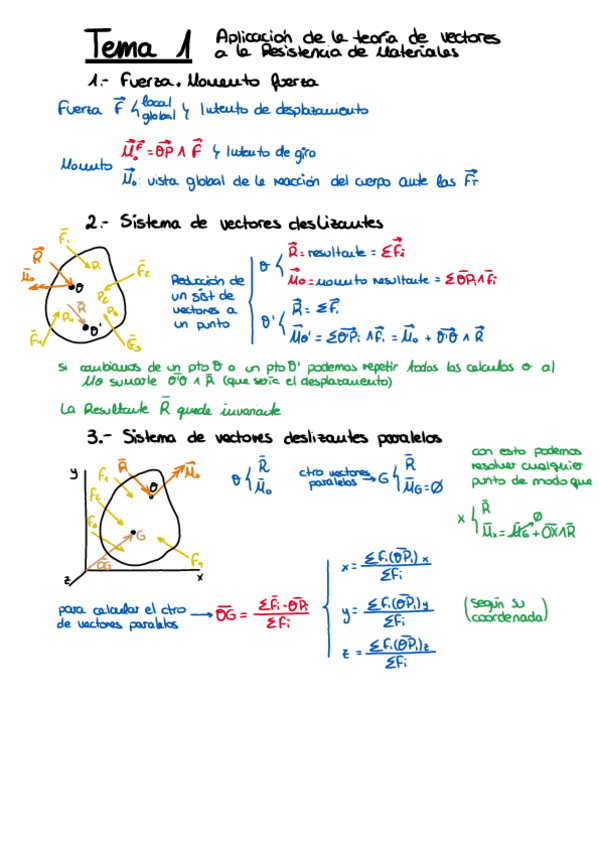 Tema 1 Aplicación de la teoría de vectores
a la Resistencia de Materiales
1.- Fuerza. Momento fuerza
Fuerza F⃗ { local
global } Intento de desplazamiento
Momento M⃗₀ᶠ = O⃗P ∧ F⃗ } Intento de giro
M⃗₀: vista global de la reacción del cuerpo ante las F⃗T
2.- Sistema de vectores deslizantes
F̄₁
R⃗
M⃗₀
P₁
F̄₂
θ
P₂
R̄
P₄
P₃
θ'
F̄₄
F̄₃
Reducción de
un sist de
vectores a
un punto
θ { R⃗ = resultante = ΣF⃗i
M⃗o = momento resultante = ΣO⃗Pi∧F⃗i
θ' { R⃗ = ΣF⃗i
M⃗o' = ΣO⃗'Pi ∧ F̄i = M⃗o + O⃗'O ∧ R⃗
Si cambiamos de un pto O a un pto O' podemos repetir todos los calculos o al
Mo sumarle O'O ∧ R̄ (que sería el desplazamiento)
La Resultante R̄ queda invariante
3.- Sistema de vectores deslizantes paralelos
y
R̄
F₁
M⃗o
θ
G
OG
z
x
θ { R̄
M̄o
ctro vectores
paralelos → G { R̄
M̄G=Ø
con esto podemos
resolver cualquier
punto de modo que
x { R̄
M̄x = M̄G + OX∧R̄
Ø
para calcular el ctro
de vectores paralelos → OG = ΣF̄i·OPi / ΣFi
x = ΣFi(OPi)x / ΣFi
y = ΣFi(OPi)y / ΣFi
z = ΣFi(OPi)z / ΣFi
(según su
coordenada)